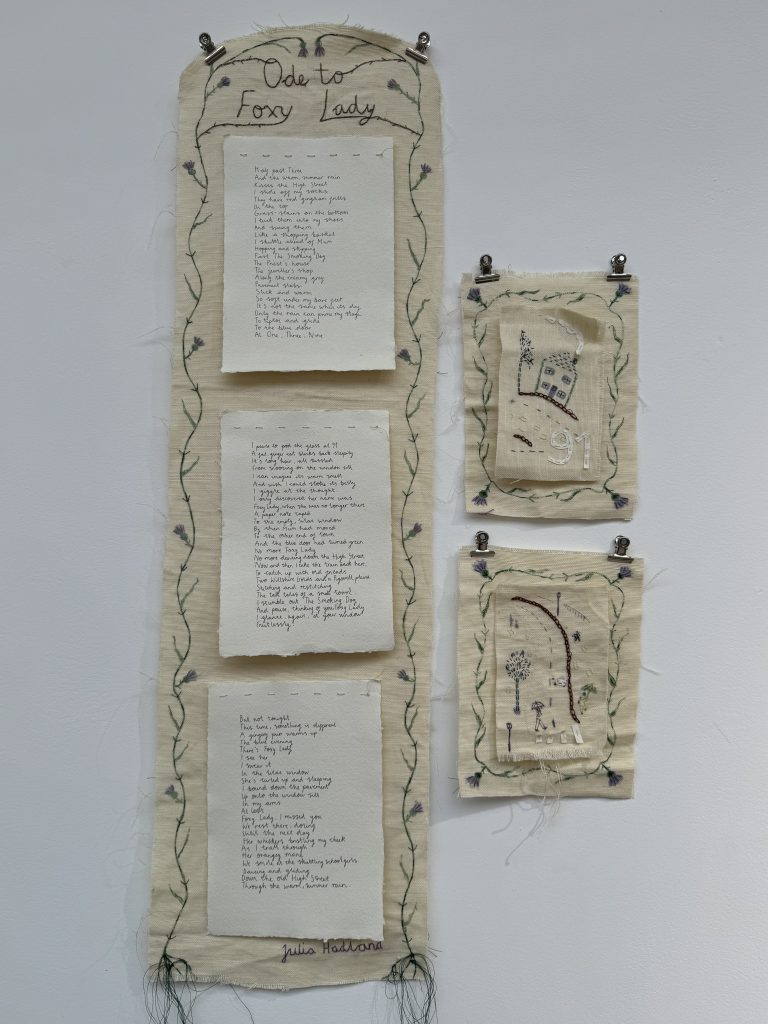 Ode to
Foxy Lady
Half past Three
And the warm summer rain
Kisses the High Street
I slide off my socks
They have red gingham frills
On the top
Grass-stains on the bottom
I tuck them into my shoes
And swing them
Like a shopping basket
I shuttle ahead of Mum
Hopping and skipping
Past The Smoking Dog
The Priest's house
The jeweller's shop
Along the creamy grey
Pavement slabs
Slick and warm
So soft under my bare feet
It's not the same when its dry
Only the rain can prime my stage
To and glide
To the blue door
At One, Three, Nine
I pause to pad the glass at 91
A fat ginger cat blinks back sleepily
It's long hair, all tussled
From snoozing on the window sill
I can imagine its warm smell
And wish I could stroke its belly
I giggle at the thought
I only discovered her name was
Foxy Lady, when she was no longer there
A paper note taped
To the empty, lilac window
By then Mum had moved
To the other end of town
And the blue door had turned green
No more Foxy Lady
No more dancing down the High Street
Now and then I take the train back here,
To catch up with old friends
Two Wiltshire Golds and a
Stitching and restitching
The tall tales of a small town
I stumble out The Smoking Dog
And pause, thinking of you Foxy Lady
I glance, again, at your window
Fruitlessly.
But not tonight
This time, something is different
A gingery purr warms up
The blue evening
There's Foxy Lady
I see her
I swear it
In the lilac window
She's curled up and sleeping
I bound down the pavement
Up onto the window sill
In my arms
At last
Foxy Lady, I missed you
We rest there, dozing
Until the next day
Her whiskers bristling my cheek
As I trail through
Her orangey mane
We smile at the shuttling schoolgirls
Dancing and gliding
Down the old High Street
Through the warm, summer rain.
Julia Hadland
91